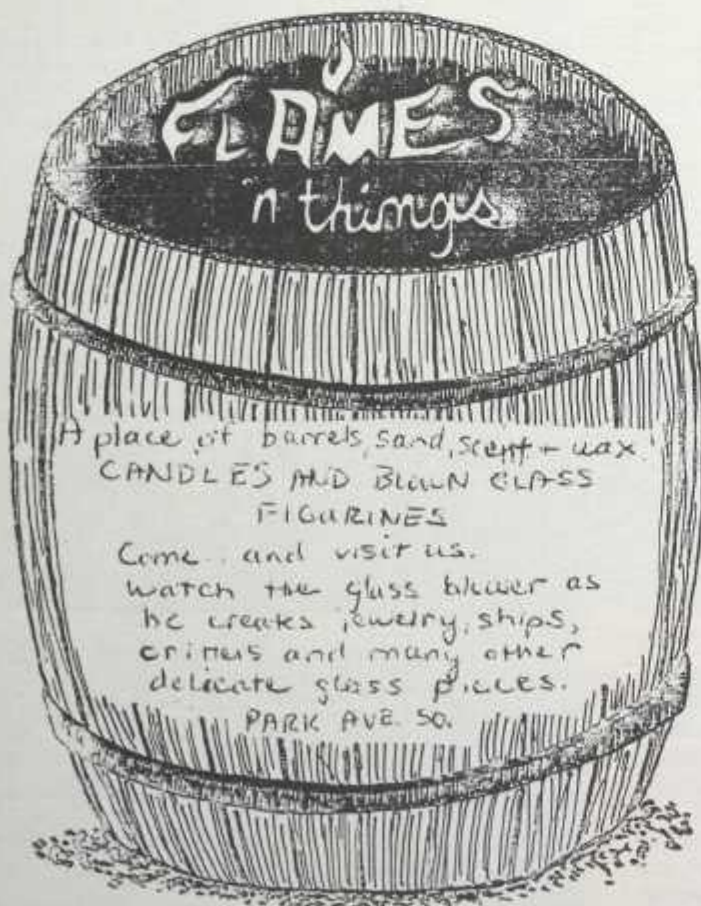 FLAMES
'n things
A place of barrels, sand, scent + wax.
CANDLES AND BLOWN GLASS
FIGURINES
Come... and visit us.
Watch the glass blower as
he creates jewelry, ships,
critters and many other
delicate glass pieces.
PARK AVE. SO.